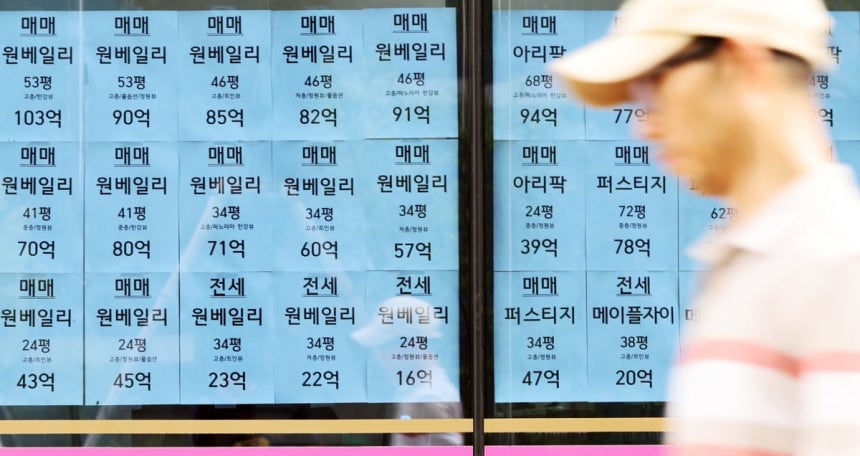 매매
원베일리
53평
고층/한강뷰
103억
매매
원베일리
53평
고층/풀옵션/정원뷰
90억
매매
원베일리
46평
고층/트인뷰
85억
매매
원베일리
46평
저층/정원뷰/풀옵션
82억
매매
원베일리
46평
고층/파노라마 한강뷰
91억
매매
아리팍
68평
고층/파노라마 한강뷰
94억
매매
77억
매매
원베일리
41평
중층/정원뷰
70억
매매
원베일리
41평
중층/한강뷰
80억
매매
원베일리
34평
고층/파노라마 한강뷰
71억
매매
원베일리
34평
고층/트인뷰
60억
매매
원베일리
34평
저층/정원뷰
57억
매매
아리팍
24평
중층/정원뷰
39억
매매
퍼스티지
72평
고층/정원뷰
78억
62평
매매
원베일리
24평
고층/트인뷰
43억
매매
원베일리
24평
고층/정원뷰/풀옵션
45억
전세
원베일리
34평
고층/트인뷰
23억
전세
원베일리
34평
저층/정원뷰
22억
전세
원베일리
24평
고층/정원뷰
16억
매매
퍼스티지
34평
고층/트인뷰
47억
전세
메이플자이
38평
고층/트인뷰
20억